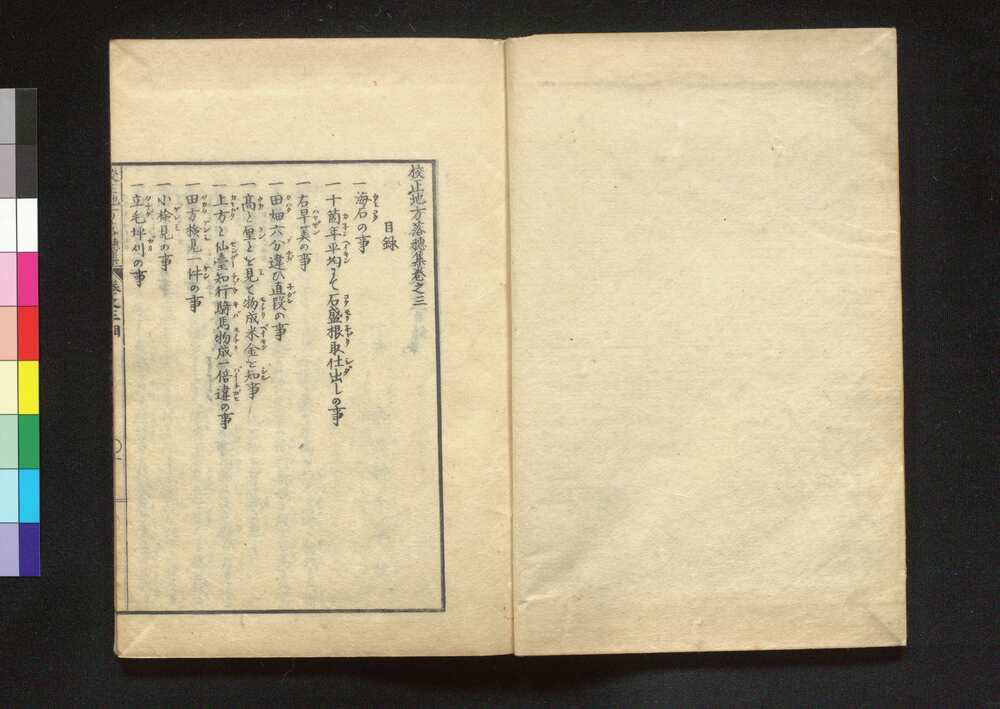 校正地方落穂集巻之三
目録
一海石の事
一十箇年平均して石盛根取仕出しの事
一右早算の事
一田畑六分違ひ直段の事
一高と厘とを見て物成米金を知事
一上方と仙臺知行騎馬物成一倍違の事
一田方検見一件の事
一小検見の事
一立毛坪刈の事
校正地方落穂集 巻之三目 〇一